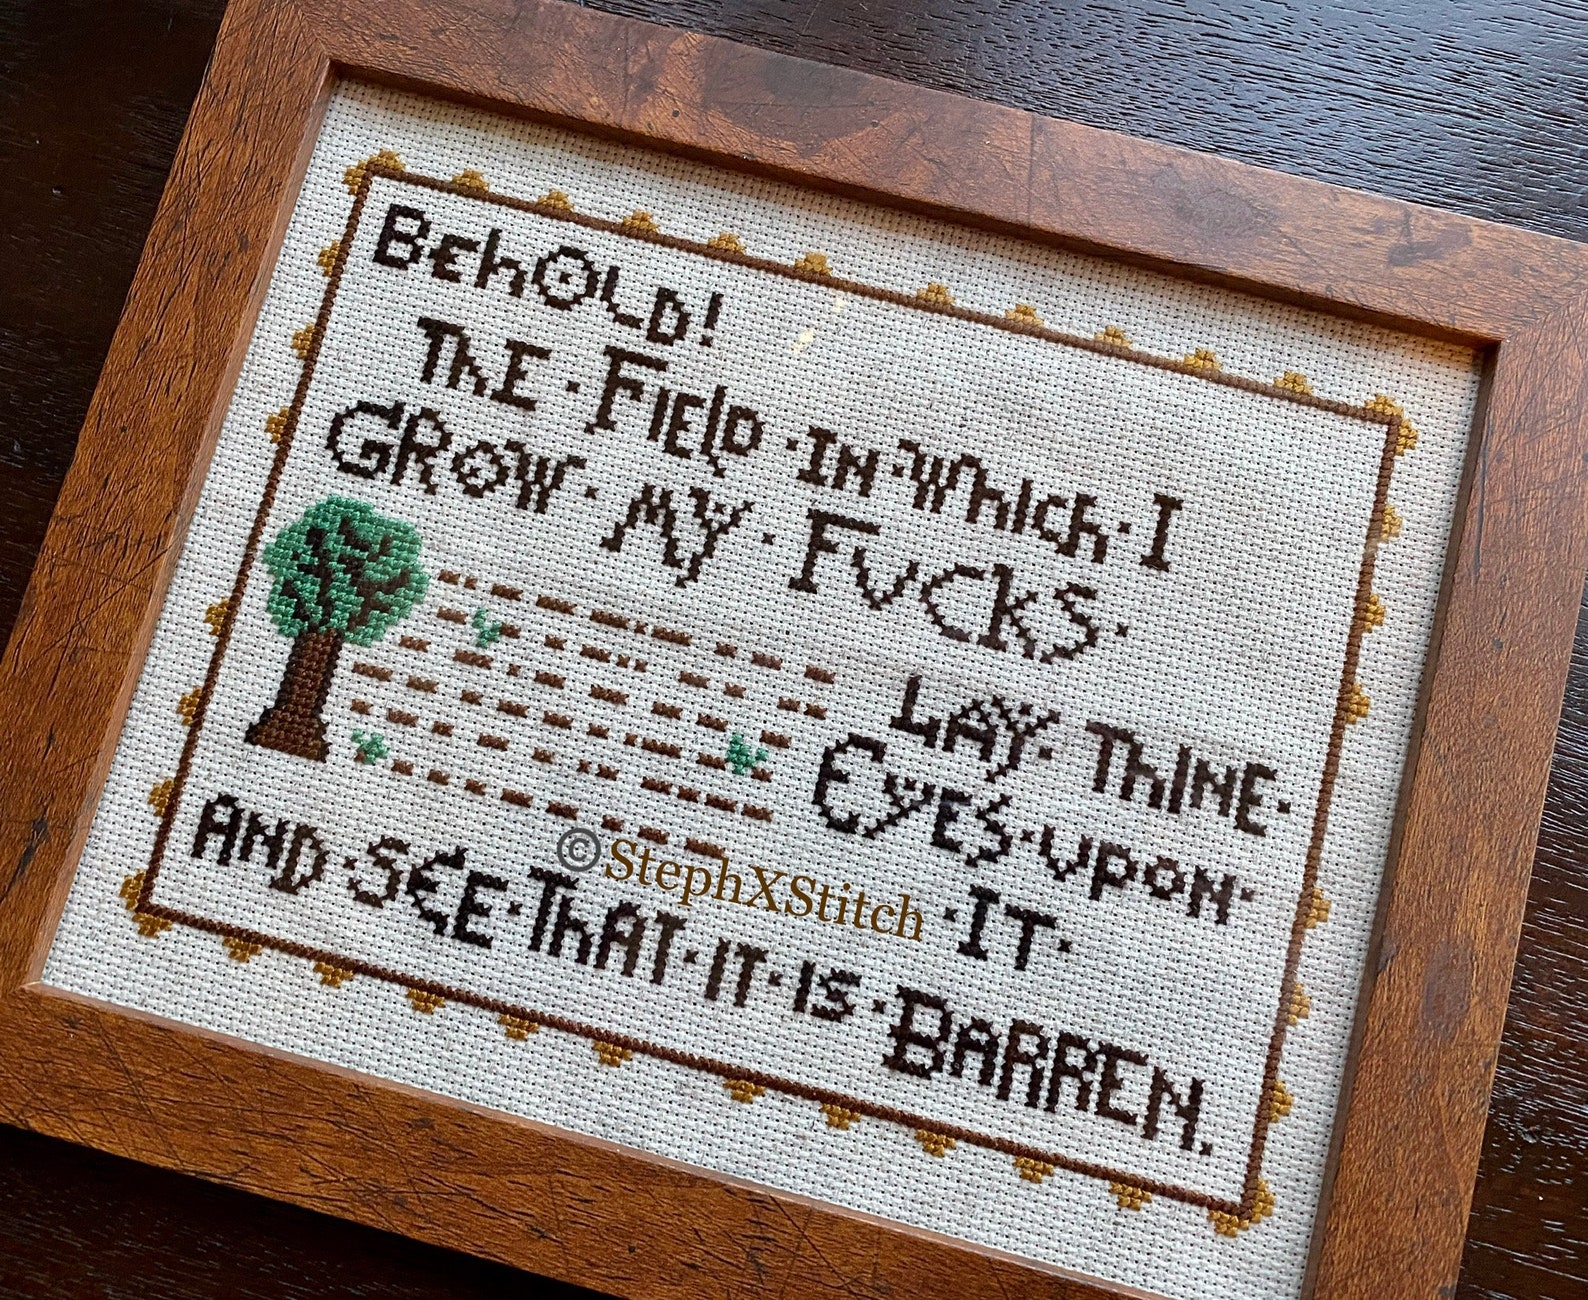 Behold!
The · Field · in · Which · I
Grow · My · Fucks ·
Lay · Thine ·
Eyes · upon ·
· It ·
And · See · That · it · is · Barren.
©StephXStitch